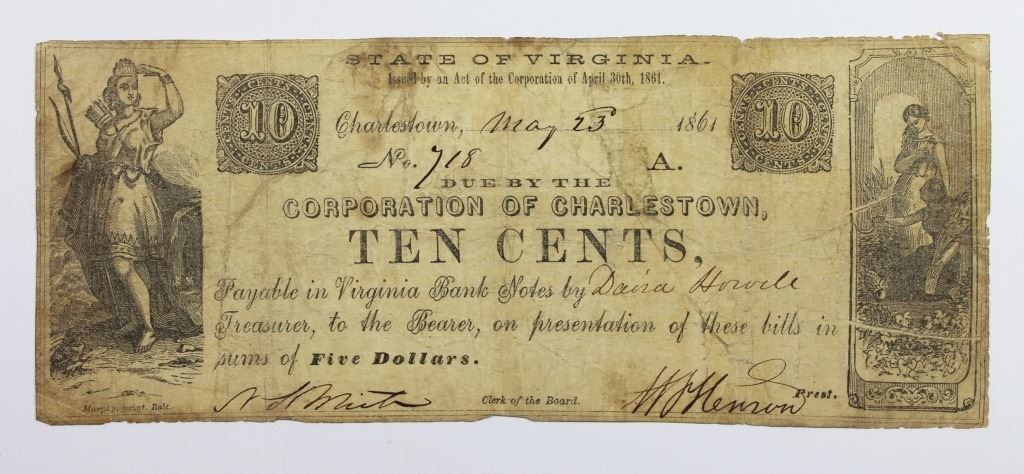 STATE OF VIRGINIA.
Issued by an Act of the Corporation of April 30th, 1861.
10 CENTS
10 CENTS
Charlestown, May 23 1861
No. 718 A.
DUE BY THE
CORPORATION OF CHARLESTOWN,
TEN CENTS,
Payable in Virginia Bank Notes by Howell
Treasurer, to the Bearer, on presentation of these bills in
sums of Five Dollars.
Murphy, print. Balt. Clerk of the Board. Prest.